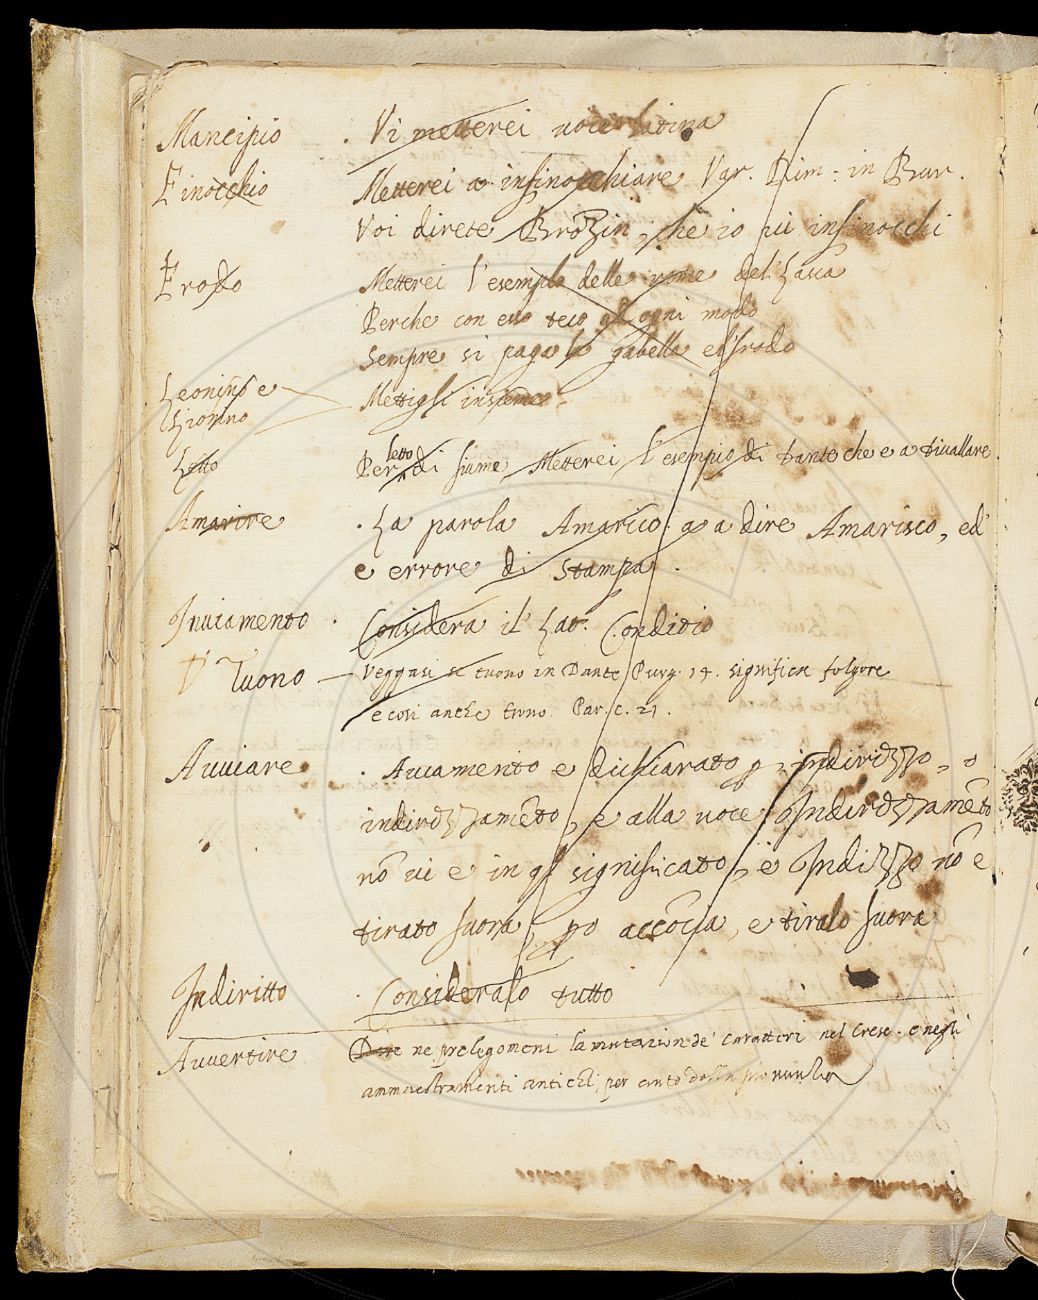 Mancipio . Vi metterei voce latina
Finocchio Metterei a infinocchiare Var. Rim. in Bur.
Voi direte Bronzin, che io vi infinocchi
Frodo Metterei l'esempio delle rime del Lasca
Perche con esso teco ad ogni modo
Sempre si paga la gabella e'l frodo
Leonino e
Lionino Mettigli insieme
Letto Per letto di fiume Metterei l'esempio di Dante che e a Divallare
Amarire . La parola Amarico a a dire Amarisco, ed
e errore di Stampa.
Inviamento . Considera il Lat. Conditio
V Tuono Veggasi se tuono in Dante Purg. 14. significa folgore
e cosi anche trono Par. c. 21.
Avviare . Aviamento e dichiarato p indirizzo, o
indirizzamẽto, e alla voce Indirizzamẽto
nõ vi e in q̃l significato, e Indizzo nõ e
tirato fuora, po accõcia, e tiralo fuora
Indiritto . Consideralo tutto
Avvertire Dire ne prolegomeni la mutazion de' caratteri nel Cresc. e negli
ammaestramenti antichi, per conto della pronunzia